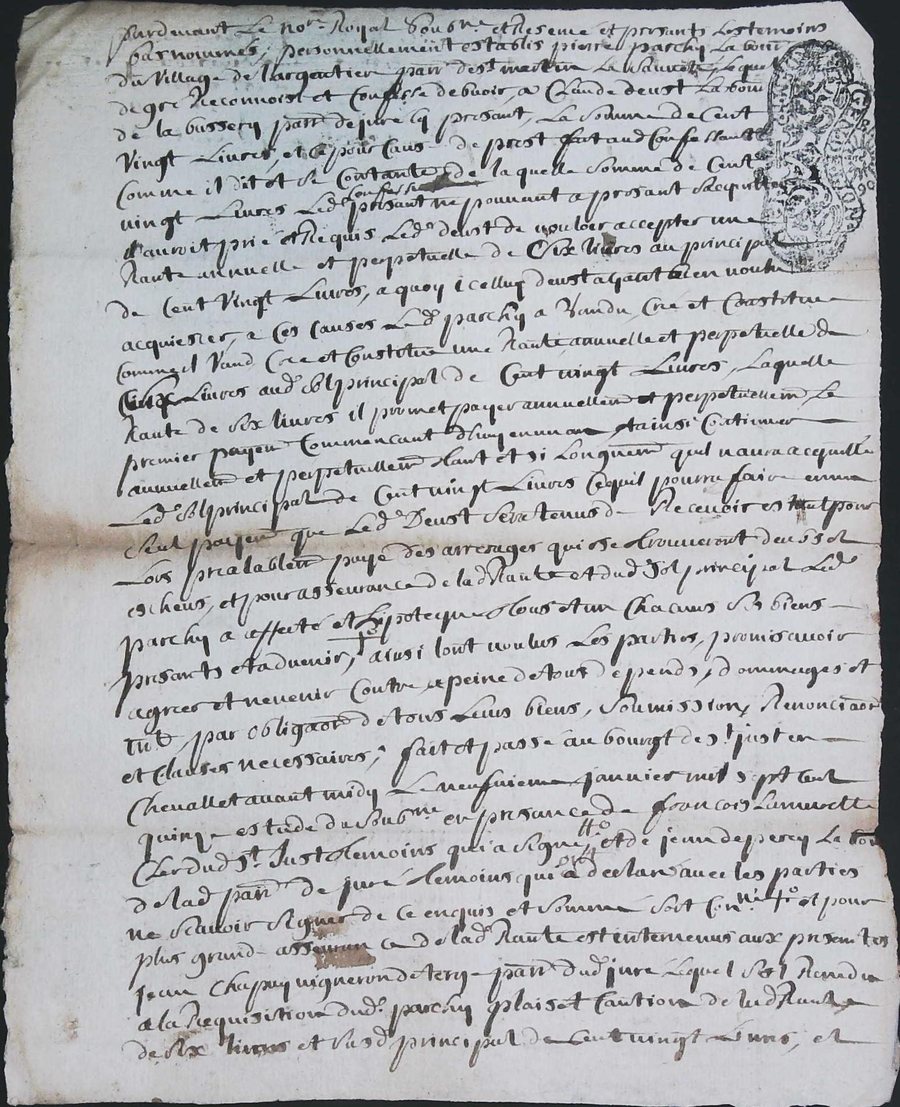 pardevant Le no.re Royal soubs.ne et Reservé et presants Les temoins
bas nommés, personnellement establis pierre parchy Labour
du Village de Largentier parr. de s.t martin La sauveté, Lequel
de gré Reconnoist et Confesse debvoir, a Claude deust Labou
de la bussery parr. de juré Cy presant, La somme de Cent
Vingt Livres, et ce pour Cause de prest fait aud Confessant
Comme il dit et se Contante, de laquelle somme de Cent
vingt Livres Led. Confess presant ne pouvant a presant sacquitter
auroit prié et Requis Led. deust de vouloir accepter une
Rante annuelle et perpetuelle de Six livres au principal
de Cent Vingt Livres, a quoy icelluy deust ayant bien voulu
acquiescer, a Ces Causes Led. parchy a Vandu, Creé et Constitué
Comme il Vand Creé et Constitue une Rante, annuelle et perpetuelle de
Six Livres aud. sol principal de Cent vingt Livres, Laquelle
Rante de six livres il promet payer annuellem et perpetuellem, Le
premier payem Commencant dhuy en un an, et ainsi Continuer
annuellem et perpetuellem tant et si Longuem quil n'aura acquitté
Led. sol principal de Cent vingt Livres Ce quil pourra faire en un
seul payem que Led. Deust sera tenus de Recevoir estant pour
Lors prealablem payé des arrerages qui se trouveront deus et
escheus, et pour asseurance de lad Rante et dud. sol principal Led.
parchy a affecté et hipotequé tous et un Chacuns ses biens
presants et advenir, ainsi lont voulus Les parties, promis avoir
agreé et ne venir Contre, a peine de tous depends, dommages et
int. par obligaon de tous Leurs biens, soumission, Renonciaon
et Clauses necessaires, fait et passé au bourgt de s.t just en
Chevallet avant midy Le neufvieme janvier mil sept cent
quinze estude du soubs.ne en presance de francois Lamurette
Clerc dud. s.t Just temoins qui a signé, et de jean depercy Labou
de lad parr. de juré temoins qui a declaré avec les parties
ne scavoir signer de ce enquis et sommé et pour
plus grande asseurance de lad. Rante est intervenus aux presentes
jean Chapuy vigneron de parr. dud. juré Lequel s'est Randu
a la Requisition dud. parchy pleige et Caution de lad Rante
de six livres et susd principal de Cent vingt Livres, et